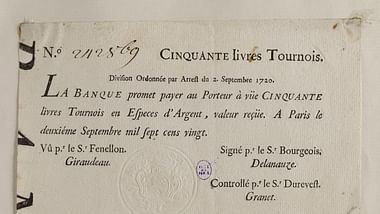 N.º 242569 CINQUANTE livres Tournois.
Division Ordonnée par Arrest du 2. Septembre 1720.
LA BANQUE promet payer au Porteur à vûe CINQUANTE
livres Tournois en Especes d'Argent, valeur reçüe. A Paris le
deuxiéme Septembre mil sept cens vingt.
Vû p.r le S.r Fenellon. Signé p.r le S.r Bourgeois,
Giraudeau. Delanauze.
Controllé p.r le S.r Durevest.
Granet.